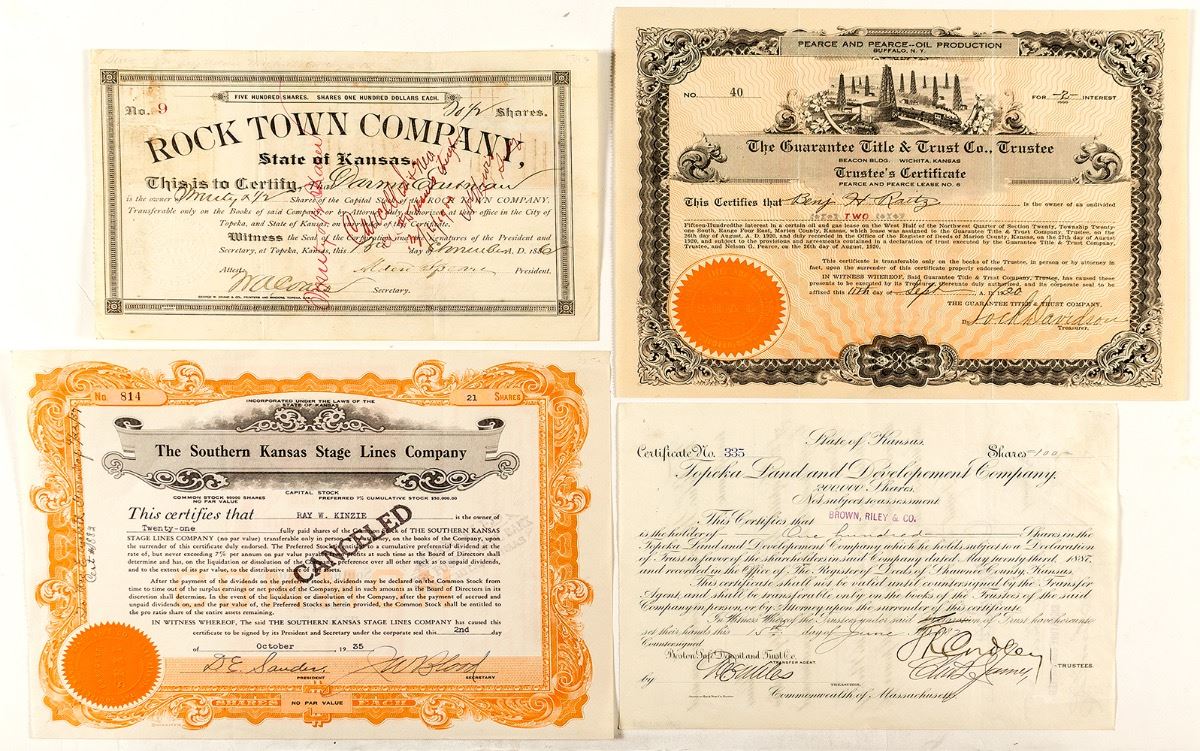 FIVE HUNDRED SHARES. SHARES ONE HUNDRED DOLLARS EACH.
No. 9 Shares.
ROCK TOWN COMPANY,
State of Kansas.
This is to Certify,
is the owner of Share of the Capital Stock of the ROCK TOWN COMPANY.
Transferable only on the Books of said Company by Attorney, duly authorized, at the office in the City of
Topeka, and State of Kansas, on of this Certificate.
Witness the Seal of the Corporation and Signatures of the President and
Secretary, at Topeka, Kansas, this day of A. D. 188
Attest: President.
Secretary.
PEARCE AND PEARCE--OIL PRODUCTION
BUFFALO, N. Y.
NO. 40 FOR INTEREST
The Guarantee Title & Trust Co., Trustee
BEACON BLDG. WICHITA, KANSAS
Trustee's Certificate
PEARCE AND PEARCE LEASE NO. 6
This Certifies that Benj. H. is the owner of an undivided
TWO
Fifteen-Hundredths interest in a certain oil and gas lease on the West Half of the Northwest Quarter of Section Twenty, Township Twenty-
one South, Range Four East, Marion County, Kansas, which lease was assigned to the Guarantee Title & Trust Company, Trustee, on the
26th day of August, A. D. 1920, and duly recorded in the Office of the Register of Deeds of Marion County, Kansas on the day of August,
1920, and subject to the provisions and agreements contained in a declaration of trust executed by the Guarantee Title & Trust Company,
Trustee, and Nelson G. Pearce, on the 26th day of August, 1920.
This certificate is transferable only on the books of the Trustee, in person or by attorney in
fact, upon the surrender of this certificate properly endorsed.
IN WITNESS WHEREOF, Said Guarantee Title & Trust Company, Trustee, has caused these
presents to be executed by its Treasurer, thereunto duly authorized, and its corporate seal to be
affixed this 11th day of Sept A. D. 1920
THE GUARANTEE TITLE & TRUST COMPANY,
By Davidson
Treasurer.
No 814 21 SHARES
INCORPORATED UNDER THE LAWS OF THE
STATE OF KANSAS
The Southern Kansas Stage Lines Company
CAPITAL STOCK
COMMON STOCK 90000 SHARES PREFERRED 7% CUMULATIVE STOCK $50,000.00
NO PAR VALUE
This certifies that RAY W. KINZIE is the owner of
Twenty-one fully paid shares of the Common Stock of THE SOUTHERN KANSAS
STAGE LINES COMPANY (no par value) transferable only in person or by Attorney, on the books of the Company, upon
the surrender of this certificate duly endorsed. The Preferred Stock is entitled to a cumulative preferential dividend at the
rate of, but never exceeding 7% per annum on par value payable at such time as the Board of Directors shall
determine and has, on the liquidation or dissolution of the Company, preference over all other stock as to unpaid dividends,
and to the extent of its par value, to the distributive share of the assets.
CANCELED
After the payment of the dividends on the preferred stocks, dividends may be declared on the Common Stock from
time to time out of the surplus earnings or net profits of the Company, and in such amounts as the Board of Directors in its
discretion shall determine. In the event of the liquidation or dissolution of the Company, after the payment of accrued and
unpaid dividends on, and the par value of, the Preferred Stocks as herein provided, the Common Stock shall be entitled to
the pro rata share of the entire assets remaining.
IN WITNESS WHEREOF, The said THE SOUTHERN KANSAS STAGE LINES COMPANY has caused this
certificate to be signed by its President and Secretary under the corporate seal this 2nd day
of October 1935
D E Sauder
PRESIDENT SECRETARY
SHARES NO PAR VALUE EACH
State of Kansas.
Certificate No. 335 Shares 100
Topeka Land and Developement Company,
200000 Shares,
Not subject to assessment
This Certifies that BROWN, RILEY & CO.
is the holder of One hundred Shares in the
Topeka Land and Developement Company which he holds subject to a Declaration
of Trust in favor of the shareholders in said Company dated May twenty third, 1887,
and recorded in the Office of The Register of Deeds of Shawnee County, Kansas.
This certificate shall not be valid until countersigned by the Transfer
Agent, and shall be transferable only on the books of the Trustees of the said
Company in person, or by Attorney upon the surrender of this certificate
In Witness Whereof the Trustees under said of Trust have hereunto
set their hands this 15th day of June
Countersigned,
Boston Safe Deposit and Trust Co.
TRANSFER AGENT.
by TRUSTEES.
TREASURER.
Commonwealth of Massachusetts